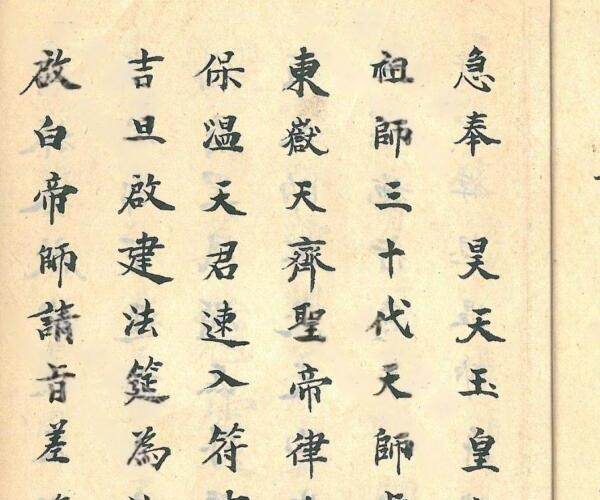 急奉 昊天玉皇
祖師三十代天師
東嶽天齊聖帝律
保温天君速入符
吉旦啟建法筵為
啟白帝師請旨差